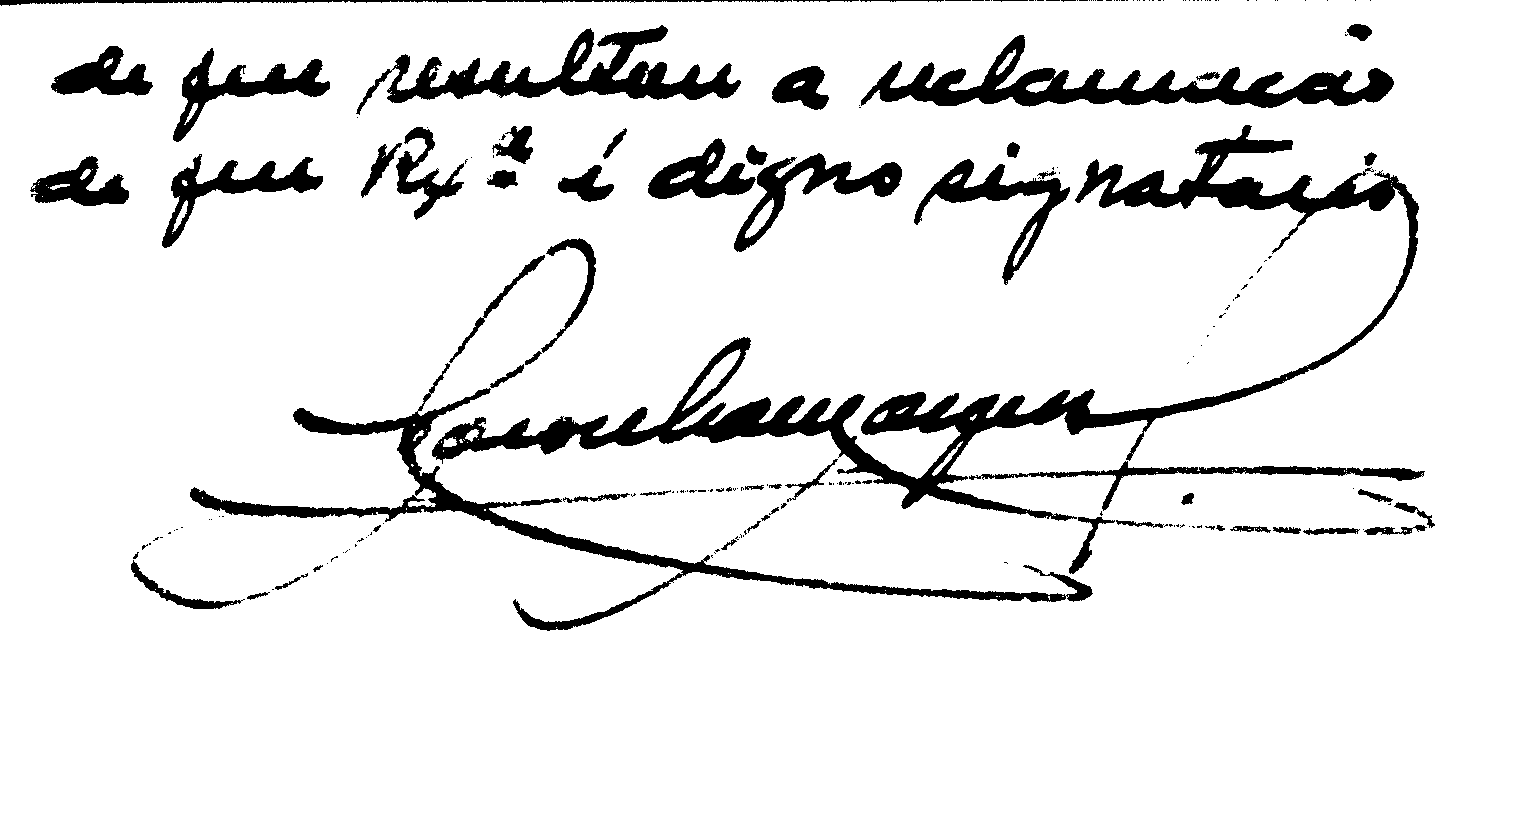 de que resultou a reclamação
de que Rx.ª é digno signatario